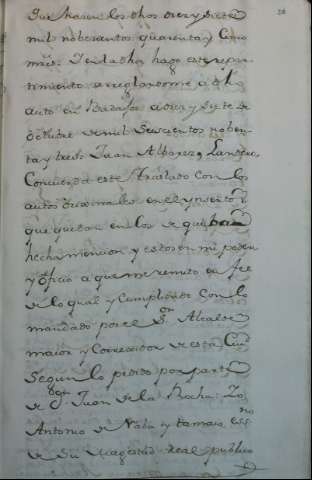 que hasen los dhos dies y siete
mil nobesientos quarenta y cinco
mrs. I en la dha hago este repar-
timiento arreglandome a dho
auto en Badajoz a dies y siete de
octubre de mil seiscientos noben-
ta y tres. Juan Albarez Landero,
Concuerda este traslado con los
autos orixinales en el ynserto
que quedan en los de que ba
hecha mencion y estos en mi poder
y oficio a que me remito en fee
de lo qual y cumpliendo con lo
mandado por el Sor Alcalde
maior y Correxidor de esta Ciu
Segun lo pedido por parte
de dn Juan de la Rocha Yo
Antonio de Naba y tamaio essno
de Su Magestad Real publico